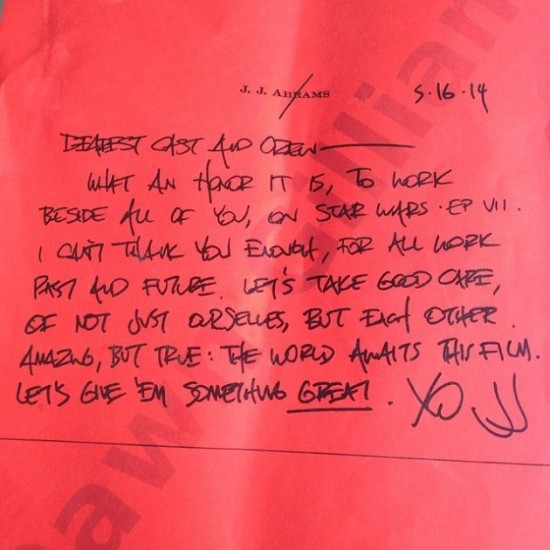 J. J. ABRAMS
5.16.14
DEAREST CAST AND CREW—
WHAT AN HONOR IT IS, TO WORK
BESIDE ALL OF YOU, ON STAR WARS · EP VII.
I CAN'T THANK YOU ENOUGH, FOR ALL WORK
PAST AND FUTURE. LET'S TAKE GOOD CARE,
OF NOT JUST OURSELVES, BUT EACH OTHER.
AMAZING, BUT TRUE: THE WORLD AWAITS THIS FILM.
LET'S GIVE 'EM SOMETHING GREAT.
XO JJ